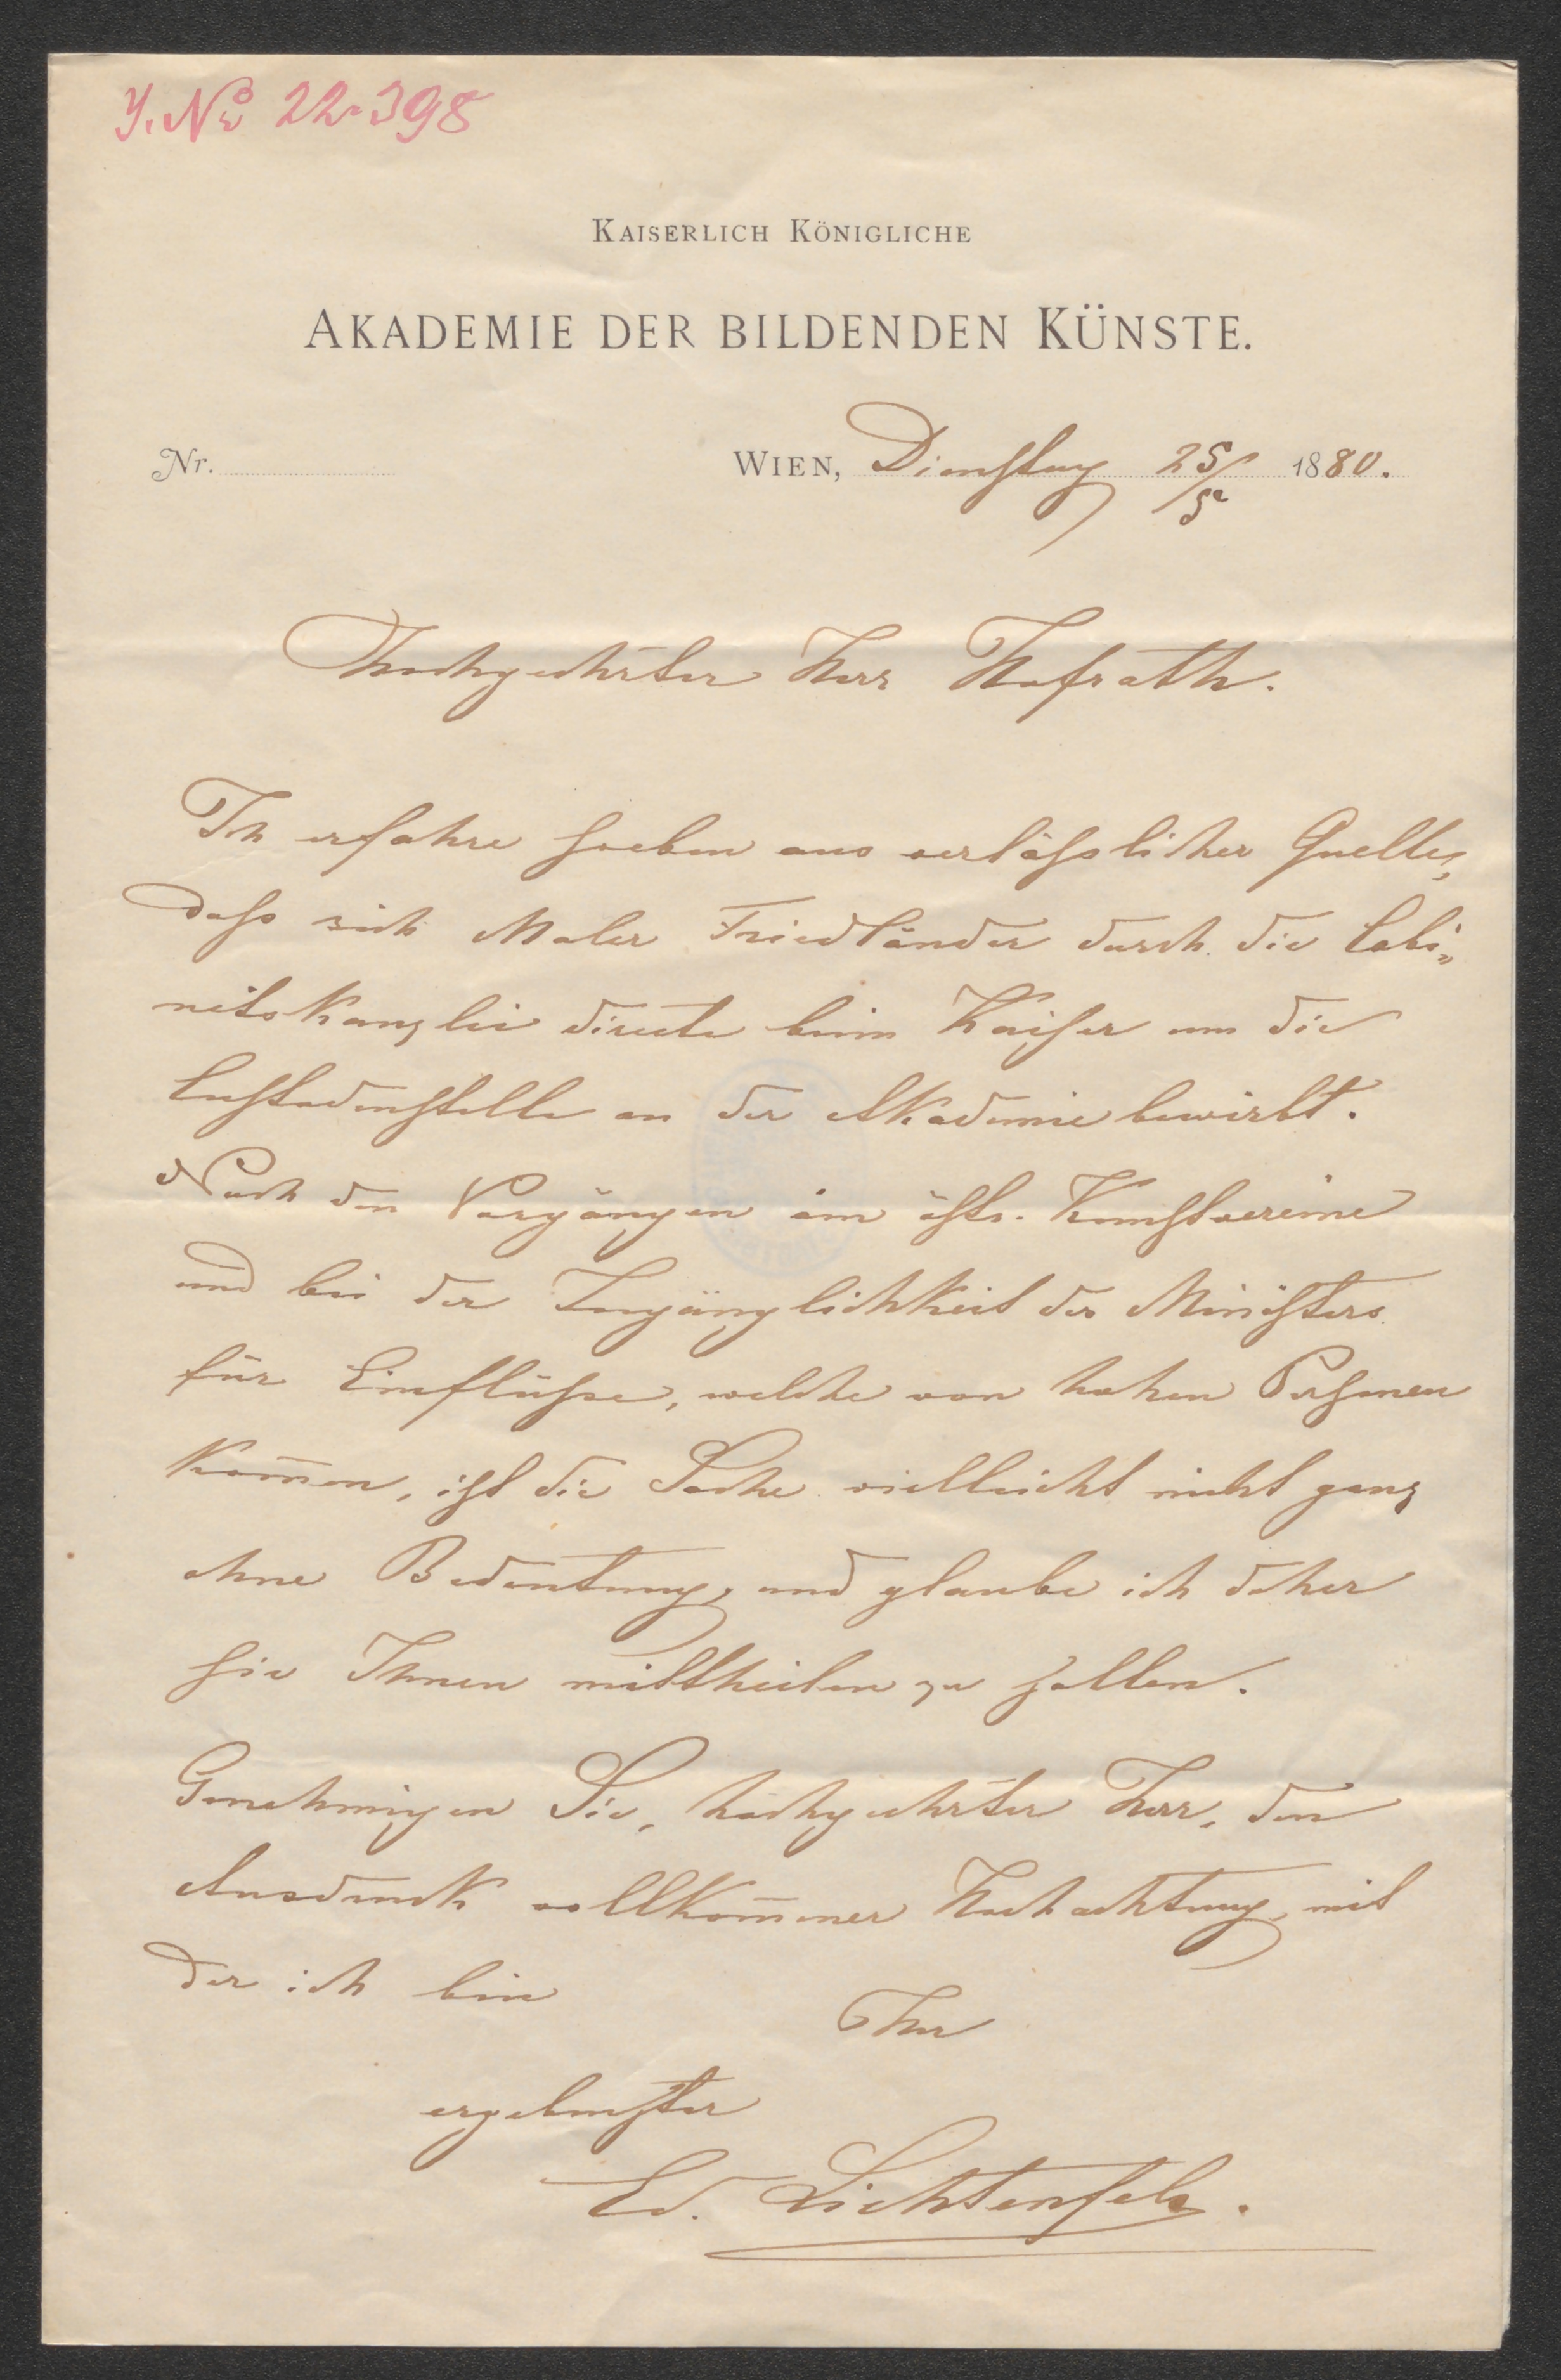 J. No 22.398
KAISERLICH KÖNIGLICHE
AKADEMIE DER BILDENDEN KÜNSTE.
Nr.
WIEN, Dienstag 25/5 1880.
Hochgeehrter Herr Hofrath.
Ich erfahre soeben aus verläßlicher Quelle,
daß sich Maler Friedländer durch die Cabi„
netskanzlei directe beim Kaiser um die
Custodenstelle an der Akademie bewirbt.
Nach den Vorgängen im östr. Kunstvereine
und bei der Zugänglichkeit des Ministers
für Einflüße, welche von hohen Personen
kom̅en, ist die Sache vielleicht nicht ganz
ohne Bedeutung, und glaube ich daher
sie Ihnen mittheilen zu sollen.
Genehmigen Sie, hochgeehrter Herr, den
Ausdruck vollkom̅ener Hochachtung, mit
der ich bin
Ihr
ergebenster
Ed. Lichtenfels.